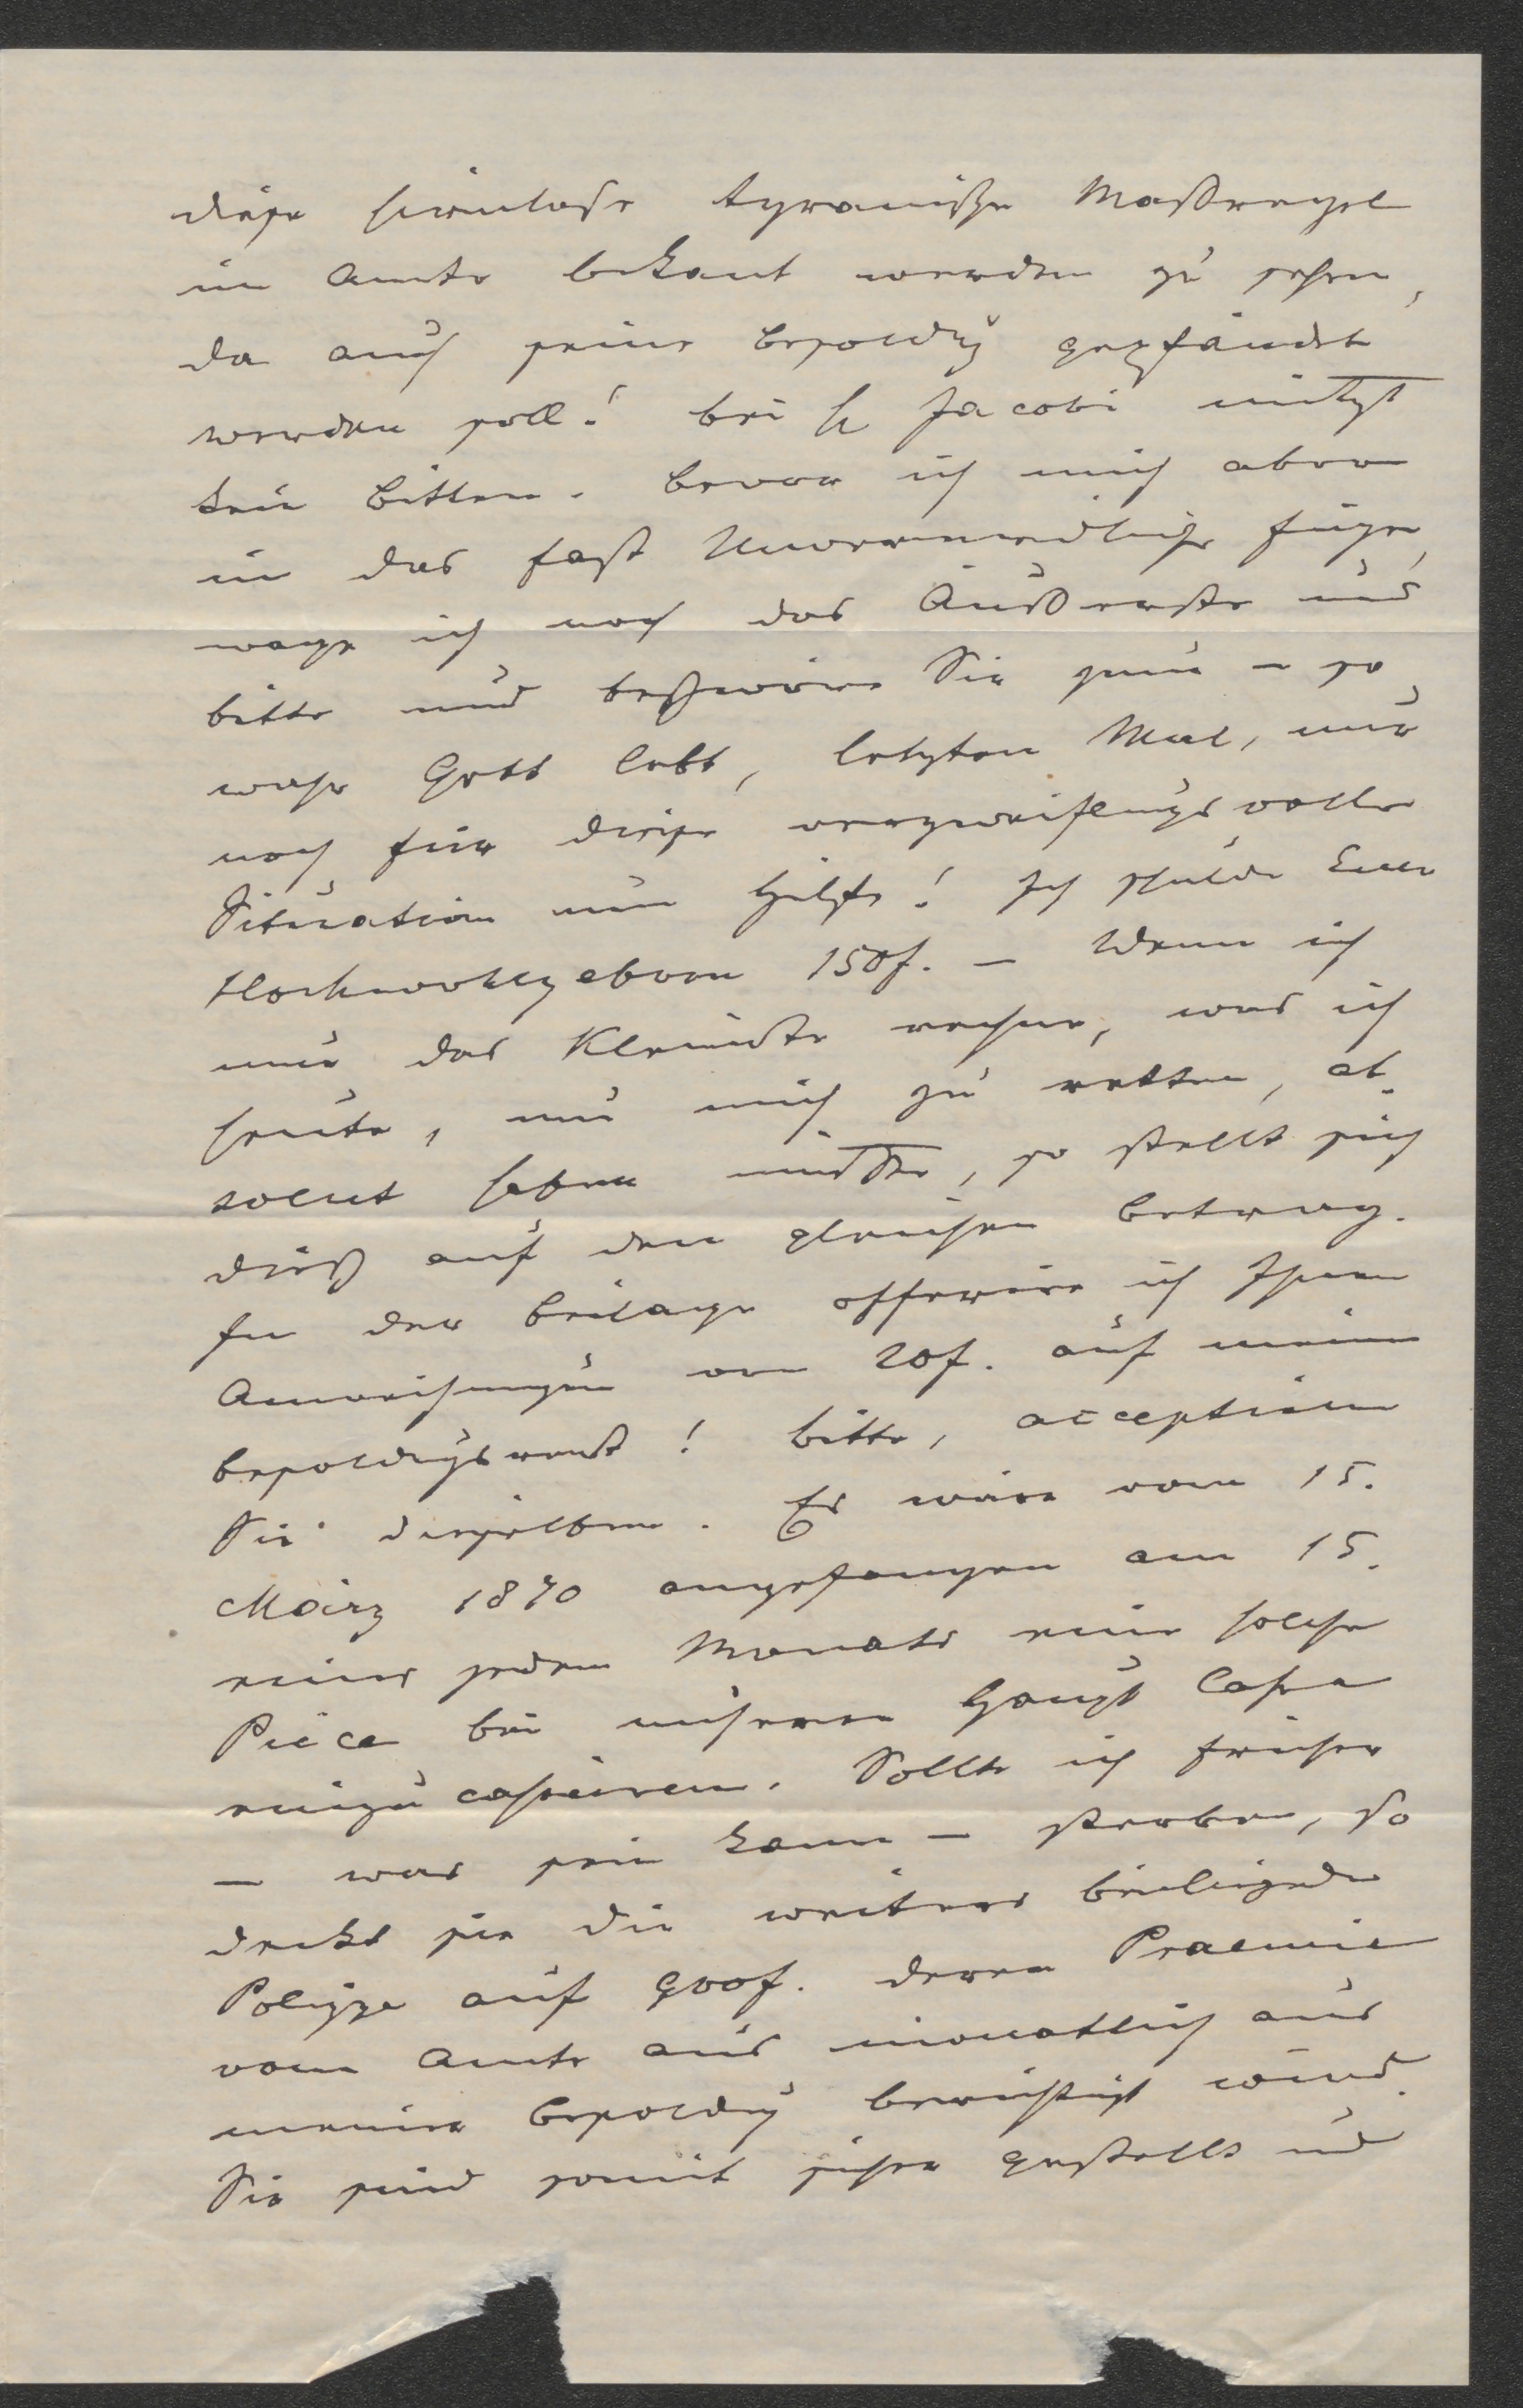 diese sinnlose tyranische Maßregel
im Amte bekant werden zu sehen,
da auch seine Besoldg gepfändet
werden soll! bei H Jacobi nützt
kein Bitten. Bevor ich mich aber
in das fast Unvermeidliche füge,
wage ich noch das Äußerste und
bitte und beschwöre Sie zum – so
wahr Gott lebt, letzten Mal, nur
noch für diese verzweiflungsvolle
Situation um Hilfe! Ich schulde Euer
Hochwohlgeboren 150 f. – Wenn ich
nur das Kleinste rechne, was ich
heute, um mich zu retten, ab
solut haben müßte, so stellt sich
dieß auf den gleichen Betrag.
In der Beilage offerire ich Ihnen
Anweisungen von 20 f. auf meinen
Besoldgsrest! Bitte, acceptiren
Sie dieselben. Es wäre vom 15.
März 1870 angefangen am 15.
eines jeden Monats eine solche
Piéce bei unserer Haupt Cassa
einzucassiren. Sollte ich früher
– was sein kann – sterben, so
deckt sie die weiters beiliegende
Polizze auf 900 f. deren Praemie
vom Amte aus monatlich aus
meiner Besoldg berichtigt wird.
Sie sind somit sicher gestellt und